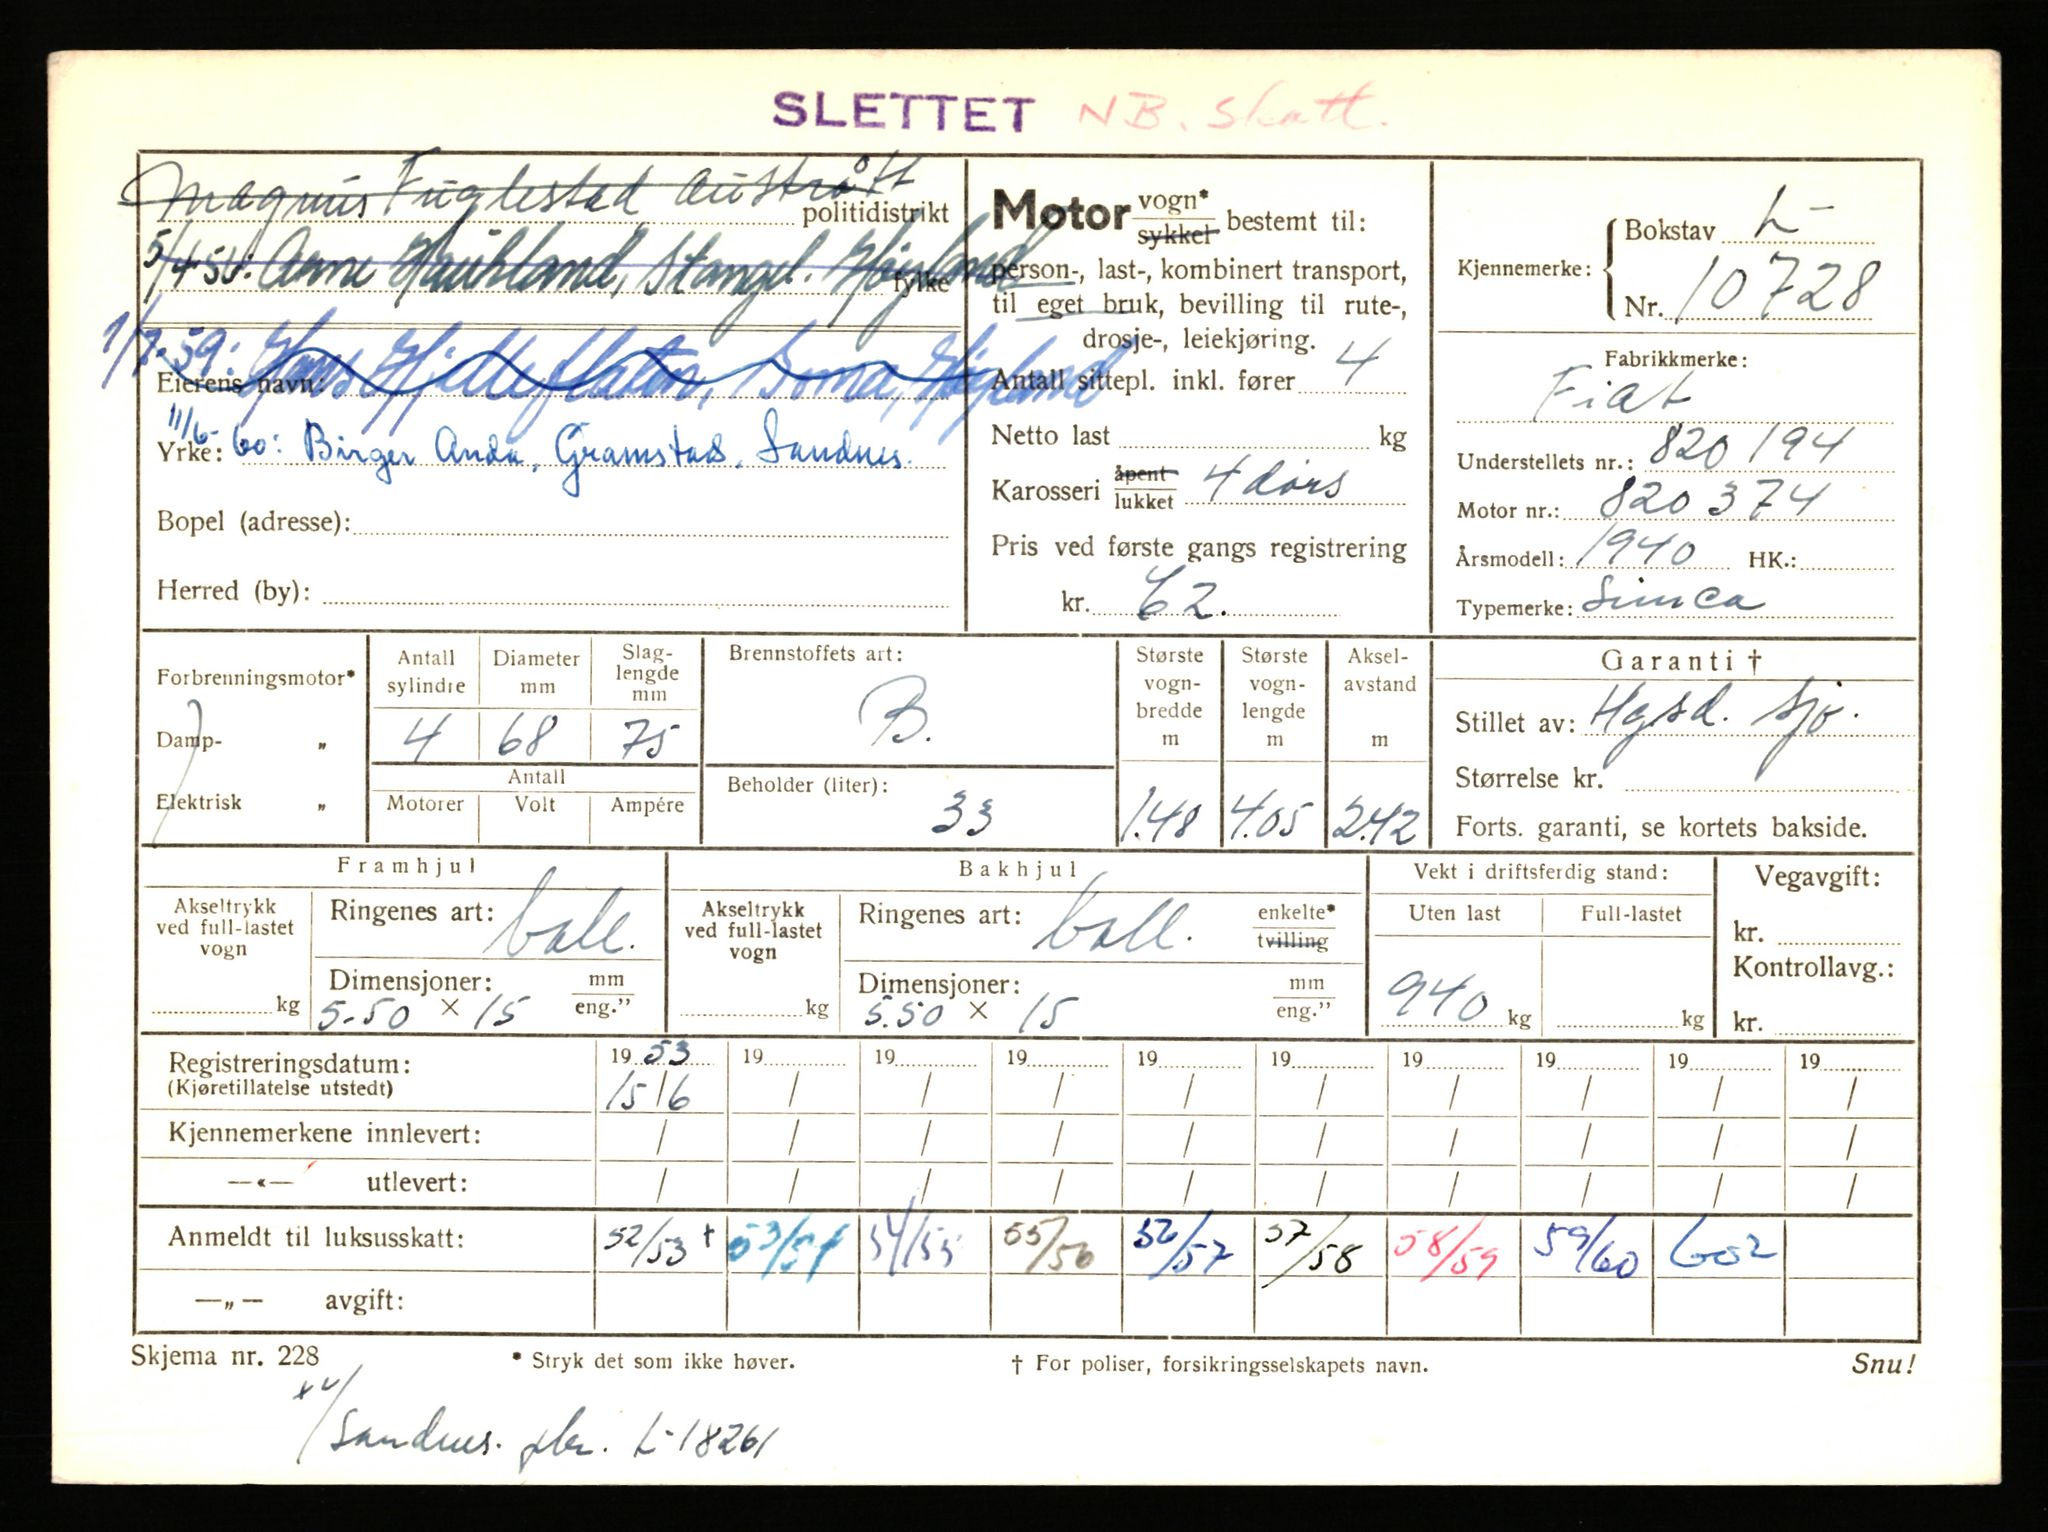 SLETTET N.B. Skatt.
Magnus Fuglestad Austrått politidistrikt
5/4-54: Anne Haukland, Stangel. Høyland fylke
1/7-59: Hans Hjelleflaten, Soma, Høyland
Eierens navn:
11/6-60: Birger Anda, Gramstad, Sandnes.
Yrke:
Bopel (adresse):
Herred (by):
Motor vogn* sykkel bestemt til:
person-, last-, kombinert transport,
til eget bruk, bevilling til rute-,
drosje-, leiekjøring.
Antall sittepl. inkl. fører 4
Netto last kg
Karosseri åpent lukket 4 dørs
Pris ved første gangs registrering
kr. 62.
Kjennemerke: Bokstav L-
Nr. 10728
Fabrikkmerke:
Fiat
Understellets nr.: 820194
Motor nr.: 820374
Årsmodell: 1940 HK.:
Typemerke: Simca
Forbrenningsmotor*
Damp- „
Elektrisk „
Antall sylindre 4
Diameter mm 68
Slaglengde mm 75
Antall
Motorer Volt Ampére
Brennstoffets art:
B.
Beholder (liter):
33
Største vognbredde m 1.48
Største vognlengde m 4.05
Akselavstand m 2.42
Garanti †
Stillet av: Hgsd. Sjø.
Størrelse kr.
Forts. garanti, se kortets bakside.
Framhjul
Akseltrykk ved full-lastet vogn kg
Ringenes art: ball.
Dimensjoner: mm eng.”
5.50 × 15
Bakhjul
Akseltrykk ved full-lastet vogn kg
Ringenes art: ball. enkelte* tvilling
Dimensjoner: mm eng.”
5.50 × 15
Vekt i driftsferdig stand:
Uten last Full-lastet
940 kg kg
Vegavgift:
kr.
Kontrollavg.:
kr.
Registreringsdatum: 1953 19 19 19 19 19 19 19 19 19
(Kjøretillatelse utstedt) 15/6 / / / / / / / / /
Kjennemerkene innlevert: / / / / / / / / / /
—«— utlevert: / / / / / / / / / /
Anmeldt til luksusskatt: 52/53 + 53/54 54/55 55/56 56/57 57/58 58/59 59/60 602
—„— avgift:
Skjema nr. 228 * Stryk det som ikke høver. † For poliser, forsikringsselskapets navn. Snu!
Sandnes. L-18261